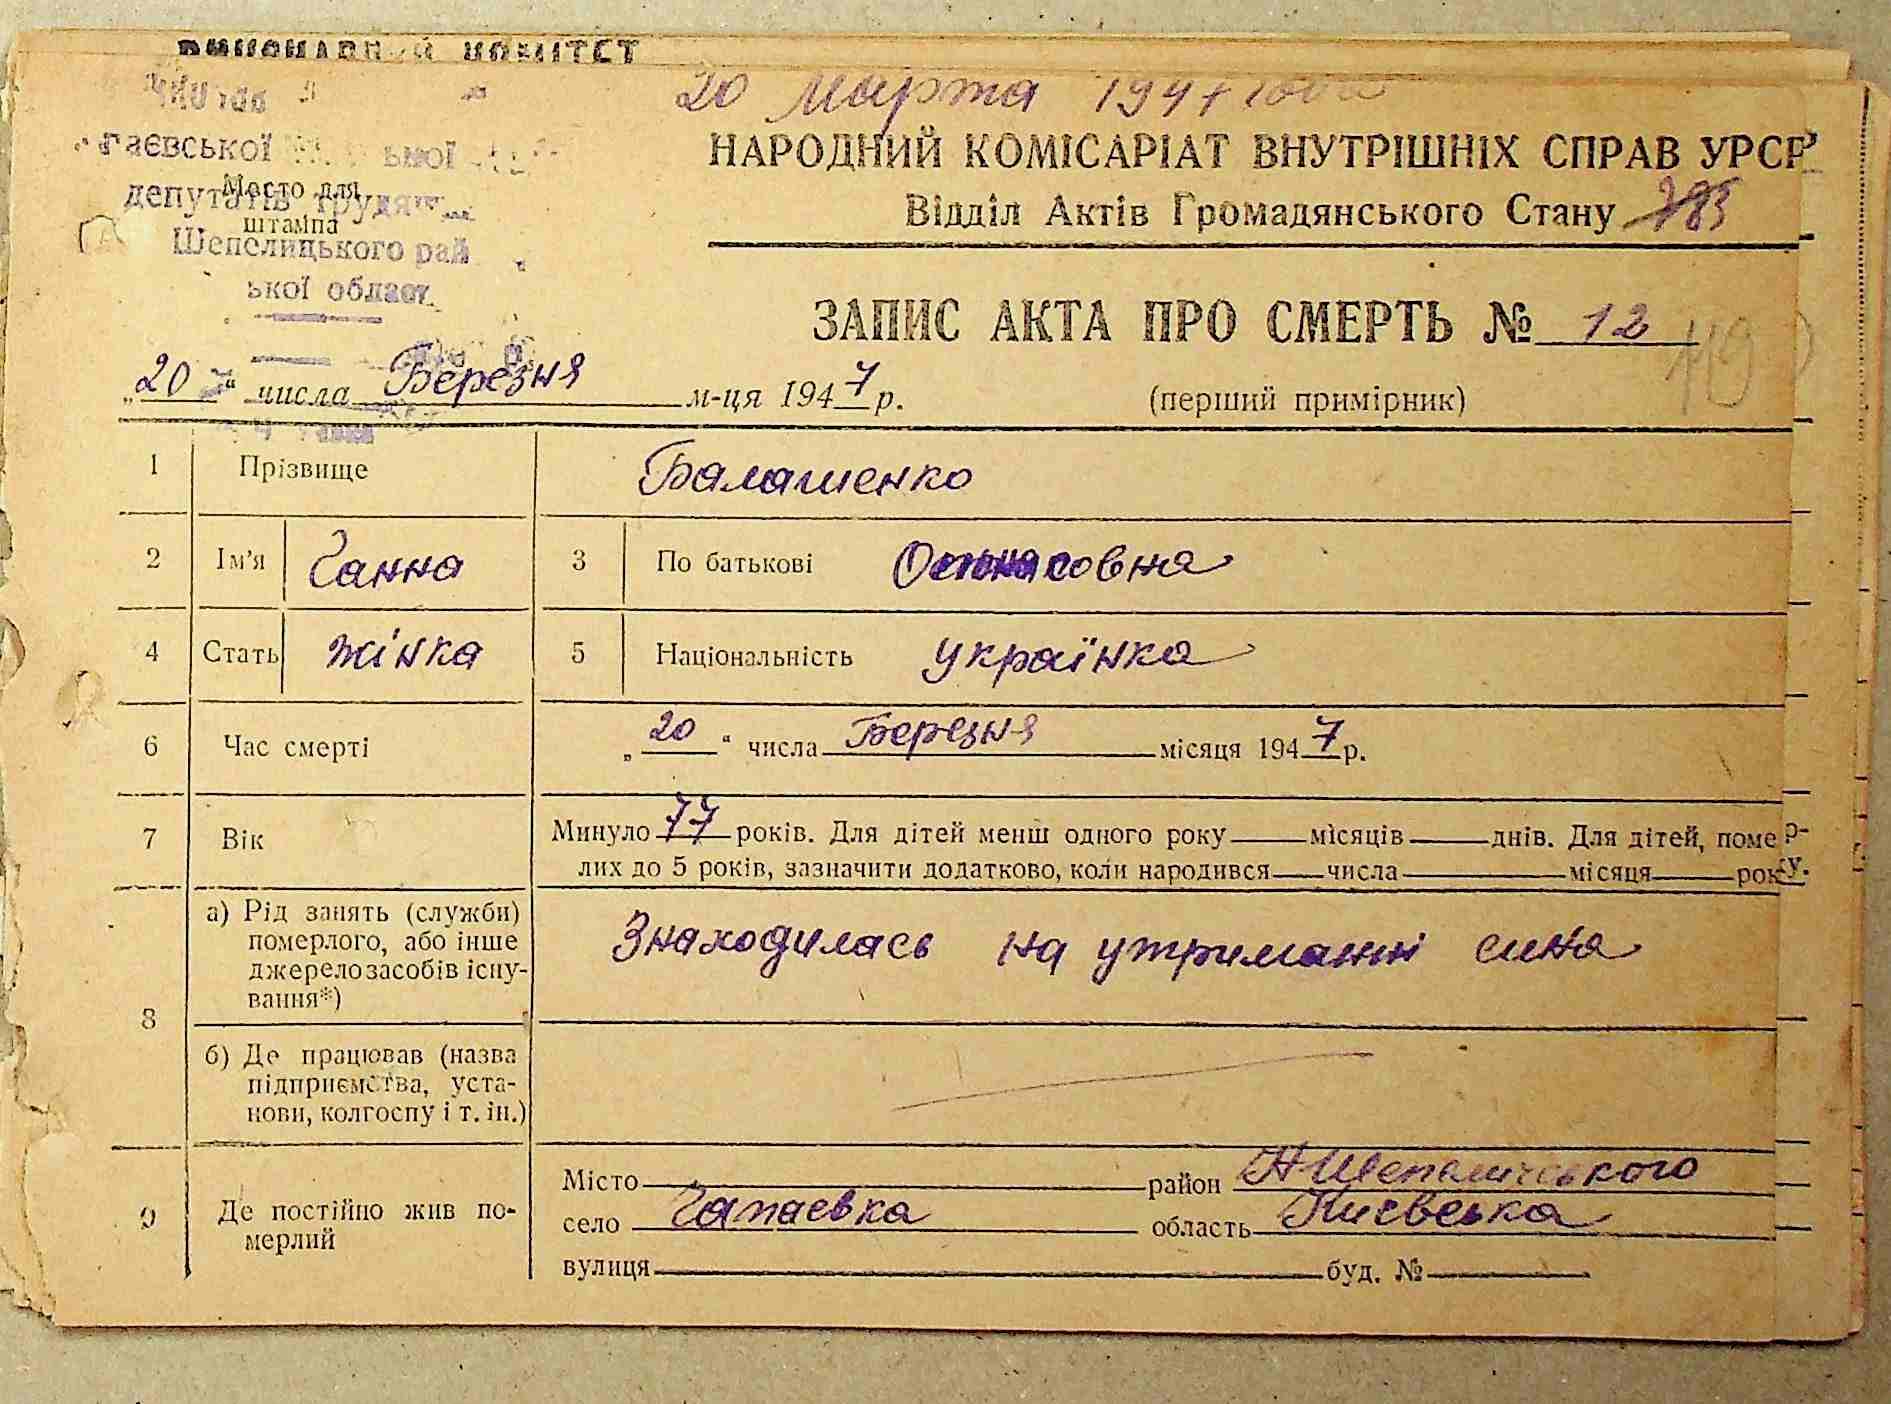 ВИКОНАВЧИЙ КОМІТЕТ
20 Марта 1947 года
депутатів трудящ
Место для
штампа
Шепелицького рай
ької област
НАРОДНИЙ КОМІСАРІАТ ВНУТРІШНІХ СПРАВ УРСР
Відділ Актів Громадянського Стану 785
ЗАПИС АКТА ПРО СМЕРТЬ № 12
119
„20“ числа Березня м-ця 1947 р. (перший примірник)
1 Прізвище Балашенко
2 Ім’я Ганна 3 По батькові
4 Стать жінка 5 Національність українка
6 Час смерті „20“ числа Березня місяця 1947 р.
7 Вік Минуло 77 років. Для дітей менш одного року місяців днів. Для дітей, помер-
лих до 5 років, зазначити додатково, коли народився числа місяця року.
8 а) Рід занять (служби)
померлого, або інше
джерело засобів існу-
вання*)
Знаходилась на утриманні сина
б) Де працював (назва
підприємства, уста-
нови, колгоспу і т. ін.)
9 Де постійно жив по-
мерлий
Місто район Н Шепелицького
село Чапаевка область Київська
вулиця буд. №